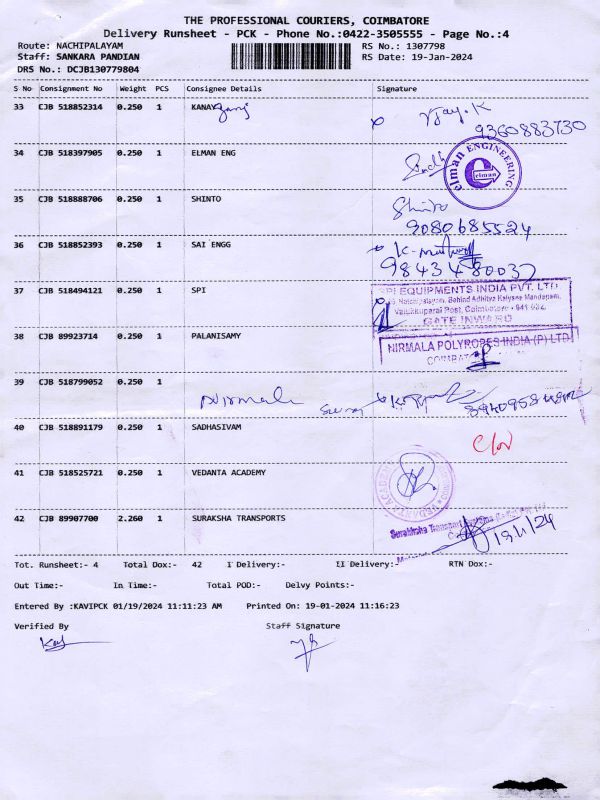 THE PROFESSIONAL COURIERS, COIMBATORE
Delivery Runsheet - PCK - Phone No.:0422-3505555 - Page No.:4
Route: NACHIPALAYAM
RS No.: 1307798
Staff: SANKARA PANDIAN
RS Date: 19-Jan-2024
DRS No.: DCJB130779804
S No Consignment No Weight PCS Consignee Details Signature
33 CJB 518852314 0.250 1 KANAY
Vjay.K
9360883730
34 CJB 518397905 0.250 1 ELMAN ENG
elman ENGINEERING
elman
35 CJB 518888706 0.250 1 SHINTO
Shinto
9080685524
36 CJB 518852393 0.250 1 SAI ENGG
37 CJB 518494121 0.250 1 SPI
SPI EQUIPMENTS INDIA PVT. LTD
Behind Adhitya Kalyana Mandapam,
Post, Coimbatore - 641 032.
GATE INWARD
38 CJB 89923714 0.250 1 PALANISAMY
NIRMALA POLYROPES INDIA (P) LTD
39 CJB 518799052 0.250 1
Nirmala
40 CJB 518891179 0.250 1 SADHASIVAM
41 CJB 518525721 0.250 1 VEDANTA ACADEMY
VEDANTA ACADEMY
42 CJB 89907700 2.260 1 SURAKSHA TRANSPORTS
Suraksha Transport
19/1/24
Tot. Runsheet:- 4 Total Dox:- 42 I Delivery:- II Delivery:- RTN Dox:-
Out Time:- In Time:- Total POD:- Delvy Points:-
Entered By :KAVIPCK 01/19/2024 11:11:23 AM Printed On: 19-01-2024 11:16:23
Verified By Staff Signature